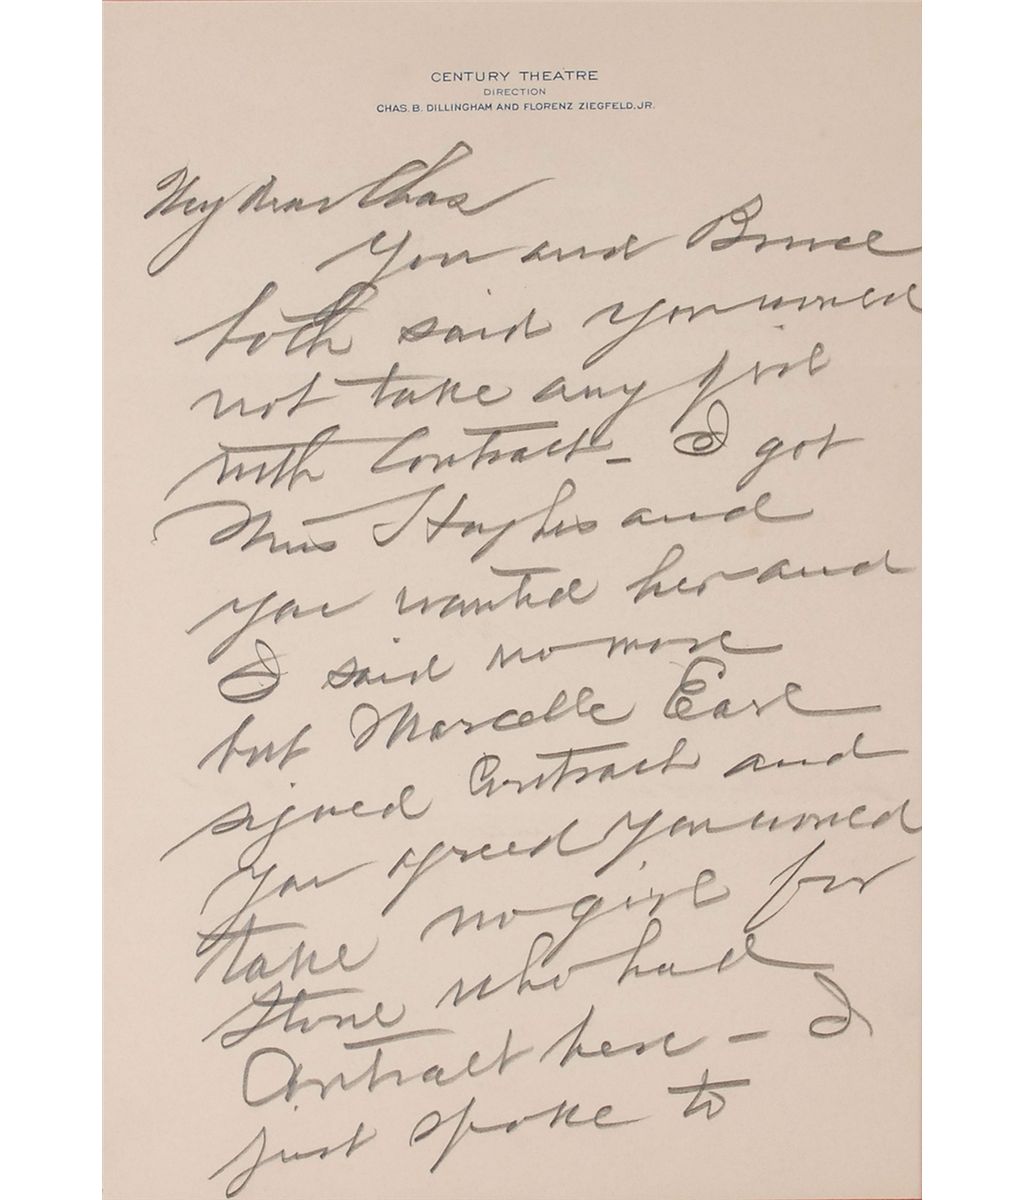 CENTURY THEATRE
DIRECTION
CHAS. B. DILLINGHAM AND FLORENZ ZIEGFELD, JR.
My dear Chas
You and Bruce
both said you would
not take any girl
with Contract – I got
Miss Hughes and
you wanted her and
I said no more
but Marcelle Earl
signed Contract and
you agreed you would
take no girl for
Stone who had
Contract here – I
just spoke to